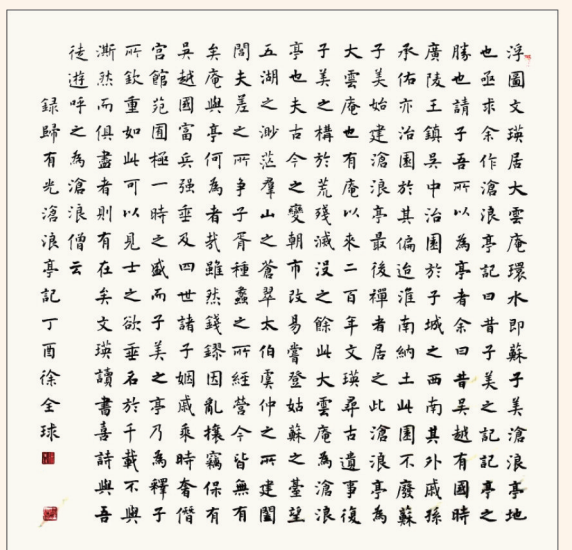 浮圖文瑛居大雲庵環水即蘇子美滄浪亭地
也亟求余作滄浪亭記曰昔子美之記記亭之
勝也請子吾所以為亭者余曰昔吳越有國時
廣陵王鎮吳中治園於子城之西南其外戚孫
承佑亦治園於其偏迨淮南納土此園不廢蘇
子美始建滄浪亭最後禪者居之此滄浪亭為
大雲庵也有庵以來二百年文瑛尋古遺事復
子美之構於荒殘滅沒之餘此大雲庵為滄浪
亭也夫古今之變朝市改易嘗登姑蘇之臺望
五湖之渺茫羣山之蒼翠太伯虞仲之所建闔
閭夫差之所爭子胥種蠡之所經營今皆無有
矣庵與亭何為者哉雖然錢鏐因亂攘竊保有
吳越國富兵强垂及四世諸子姻戚乘時奢僭
宮館苑囿極一時之盛而子美之亭乃為釋子
所欽重如此可以見士之欲垂名於千載不與
澌然而俱盡者則有在矣文瑛讀書喜詩與吾
徒遊呼之為滄浪僧云
錄歸有光滄浪亭記丁酉徐全球